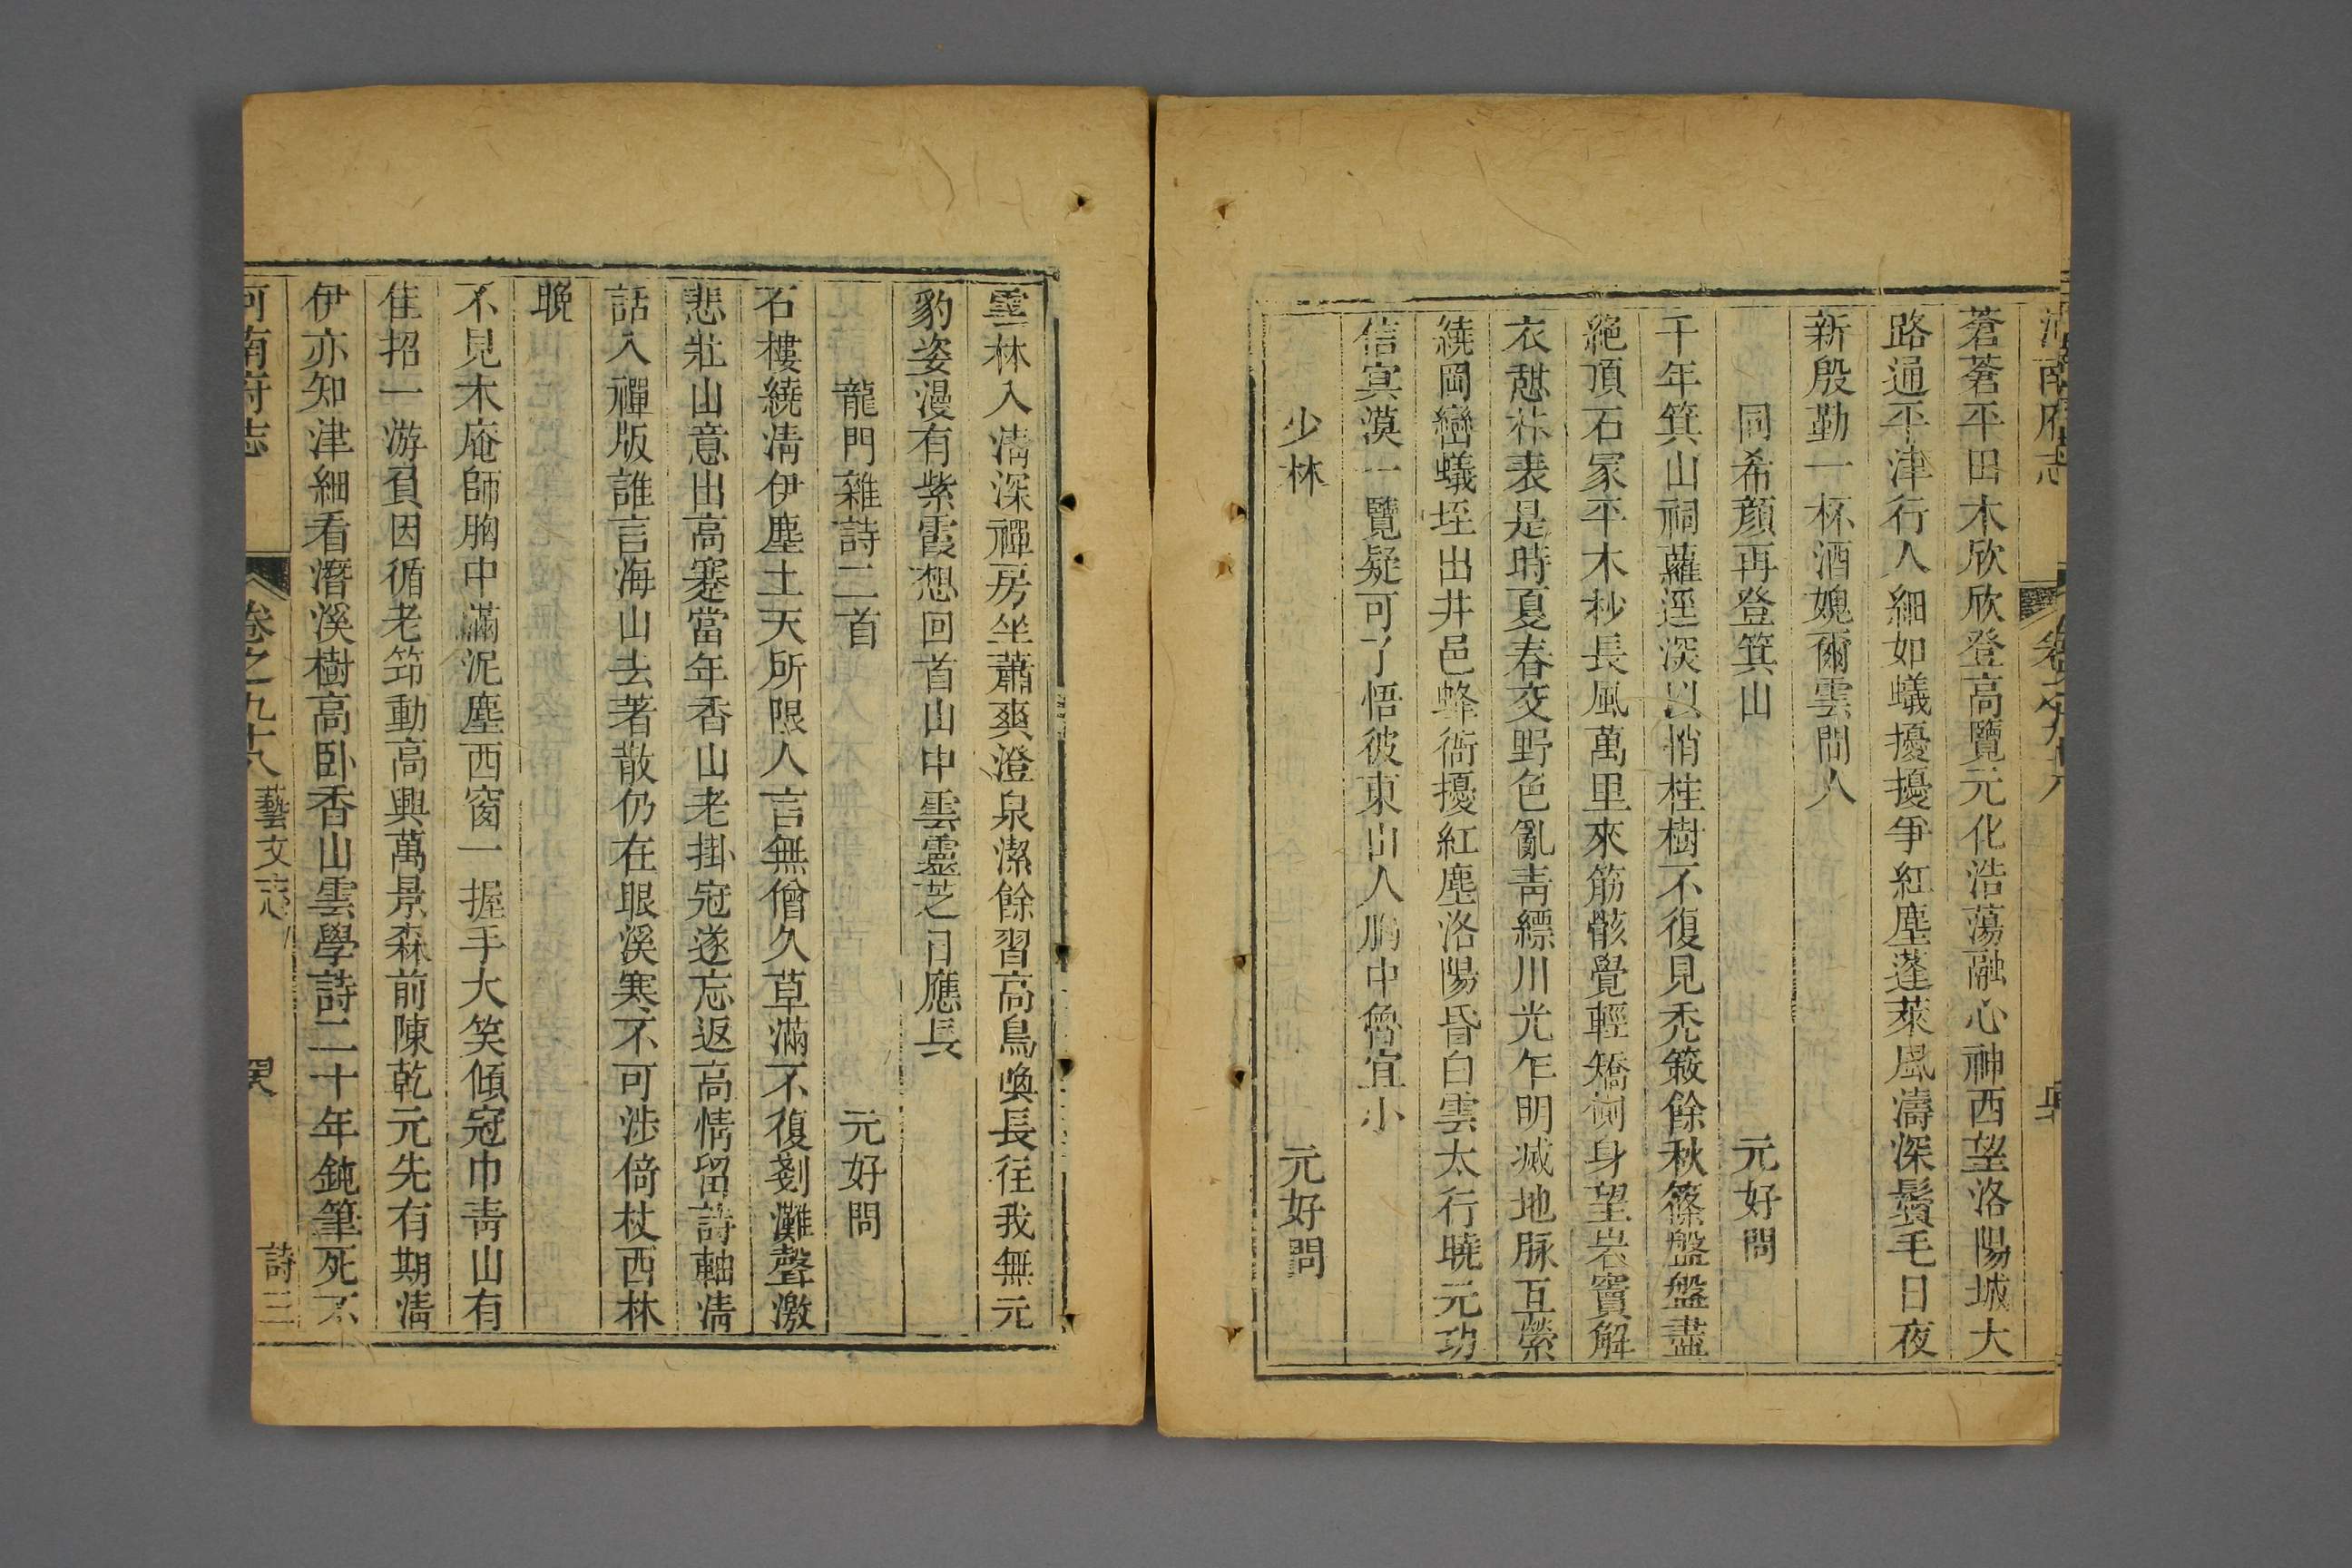 河南府志 卷之九十八
蒼蒼平田木欣欣登高覽元化浩蕩融心神西望洛陽城大
路通平津行人細如蟻擾擾爭紅塵蓬萊風濤深鬢毛日夜
新殷勤一杯酒媿爾雲間人
同希顔再登箕山 元好問
千年箕山祠蘿逕深以悄桂樹不復見禿簌餘秋篠盤盤盡
絕頂石冢平木杪長風萬里來筋骸覺輕矯側身望岩竇解
衣憇林表是時夏春交野色亂靑縹川光乍明滅地脉互縈
繞岡巒蟻垤出井邑蜂衙擾紅塵洛陽昏白雲太行曉元功
信冥漠一覽疑可了悟彼東山人胸中魯宜小
少林 元好問
雲林入淸深禪房坐蕭爽澄泉潔餘習高鳥喚長往我無元
豹姿漫有紫霞想回首山中雲靈芝日應長
龍門雜詩二首 元好問
石樓繞淸伊塵土天所限人言無僧久草滿不復剗灘聲激
悲壯山意出高蹇當年香山老掛冠遂忘返高情留詩軸淸
話入禪版誰言海山去著散仍在眼溪寒不可涉倚杖西林
晚
不見木庵師胸中滿泥塵西窗一握手大笑傾冠巾靑山有
佳招一游負因循老筇動高興萬景森前陳乾元先有期淸
伊亦知津細看潛溪樹高臥香山雲學詩二十年鈍筆死不
河南府志 卷之九十八 藝文志 詩三